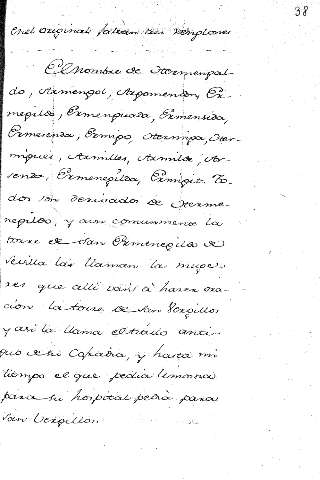 38
en el original faltan tres renglones
El nombre de Hermenpal-
do, Armengol, Armomendon, Er-
megildo, Ermenguada, Ermensida,
Ermesenda, Ermigo, Hermiga, Her-
migues, Armilles, Armilde, Ar-
senda, Ermenegilda, Ermigit. To-
dos son derivados de Herme-
negildo, y aun comunmente la
torre de San Ermenegildo de
Sevilla las llaman las muge-
res que alli van à hacer ora-
cion la torre de San Vergillos
y asi la llama el titulo anti-
guo de su Cofradia, y hasta mi
tiempo el que pedia limosna
para su hospital pedia para
San Vergillos.